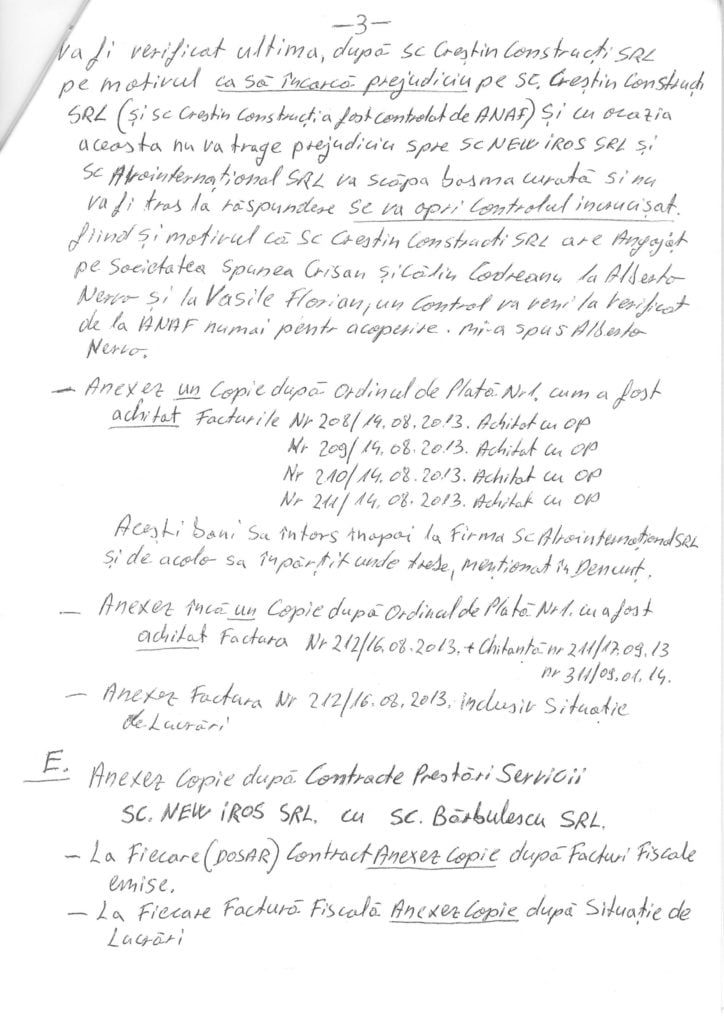 —3—
va fi verificat ultima, după SC Creștin Construcți SRL
pe motivul ca să încarcă prejudiciu pe SC. Creștin Construcți
SRL (și SC Creștin Construcți a fost controlat de ANAF) și cu ocazia
aceasta nu va trage prejudiciu spre SC NEW iROS SRL și
SC Atrointernațional SRL va scăpa basma curată si nu
va fi tras la răspundere se va opri Controlul incrucișat.
fiind și motivul că SC Creștin Constructi SRL are Angajat
pe Societatea Spunea Crisan și Călin Codreanu la Alberto
Nervo și la Vasile Florian, un Control va veni la verificat
de la ANAF numai pentr acoperire. mi-a spus Alberto
Nervo.
— Anexez un Copie după Ordinul de Plată Nr1. cum a fost
achitat Facturile Nr 208/14.08.2013. Achitat cu OP
Nr 209/14.08.2013. Achitat cu OP
Nr 210/14.08.2013. Achitat cu OP
Nr 211/14.08.2013. Achitat cu OP
Acești bani sa întors înapoi la Firma SC Atrointernaționd SRL
și de acolo sa înpărțit unde trebe, menționat în Denunț.
— Anexez încă un Copie după Ordinul de Plată Nr1. cu a fost
achitat Factura Nr 212/16.08.2013. + Chitanță nr 211/17.09.13
nr 311/09.01.14.
— Anexez Factura Nr 212/16.08.2013. inclusiv Situație
de Lucrări
E. Anexez Copie după Contracte Prestări Servicii
SC. NEW iROS SRL. cu SC. Bărbulescu SRL.
— La Fiecare (DOSAR) Contract Anexez Copie după Facturi Fiscale
emise.
— La Fiecare Factură Fiscală Anexez Copie după Situație de
Lucrări